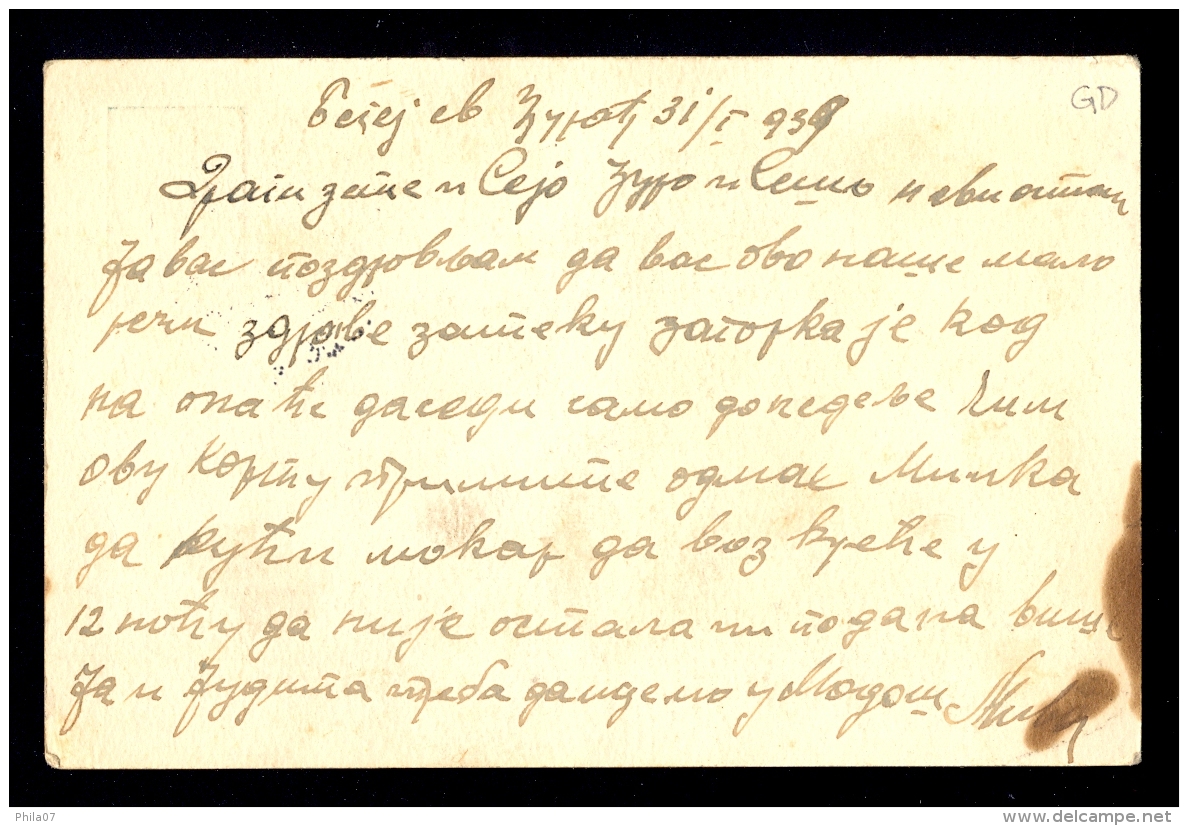 Бечеј св Ђурађ 31/I 938
GD
Драги зете и Сејо и остали
Ја вас поздрављам да вас ово наше мало
речи здраве затеку Загорка је код
на она ће да седи само до недеље Чим
ову карту примите одмах Милка
да кући макар да воз креће у
12 ноћу да није остала ни по дана више
Ја и Јудита треба да идемо у Модош
Phila07
www.delcampe.net